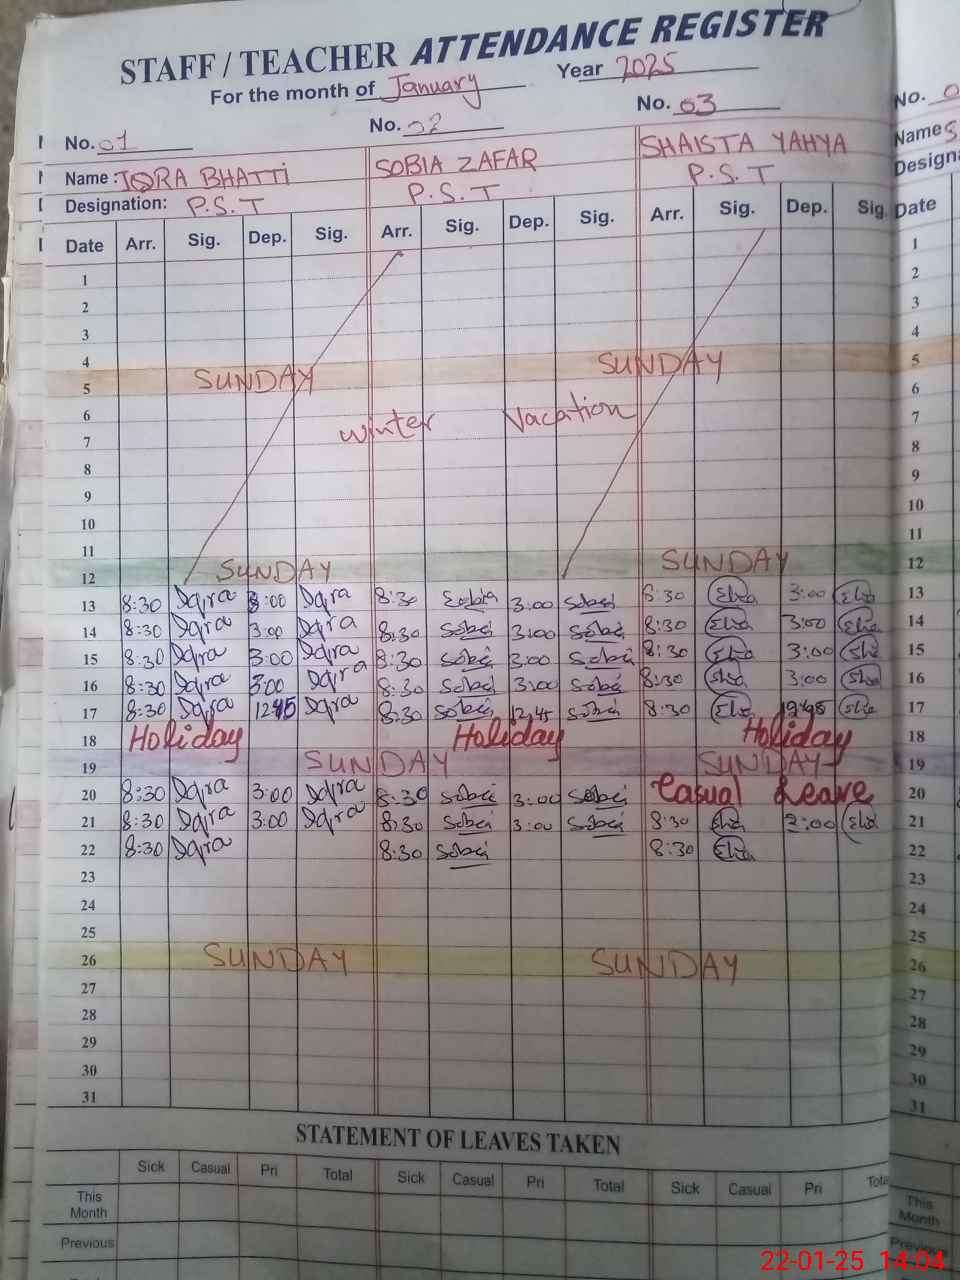 STAFF / TEACHER ATTENDANCE REGISTER
For the month of January Year 2025
No. 01 No. 02 No. 03 No.
Name : IQRA BHATTI SOBIA ZAFAR SHAISTA YAHYA Name S
Designation: P.S.T P.S.T P.S.T Design
Date Arr. Sig. Dep. Sig. Arr. Sig. Dep. Sig. Arr. Sig. Dep. Sig. Date
1 1
2 2
3 3
4 4
5 SUNDAY SUNDAY 5
6 6
7 Winter Vacation 7
8 8
9 9
10 10
11 11
12 SUNDAY SUNDAY 12
13 8:30 Iqra 3:00 Iqra 8:30 Sobia 3:00 Sobia 8:30 3:00 13
14 8:30 Iqra 3:00 Iqra 8:30 Sobia 3:00 Sobia 8:30 3:00 14
15 8:30 Iqra 3:00 Iqra 8:30 Sobia 3:00 Sobia 8:30 3:00 15
16 8:30 Iqra 3:00 Iqra 8:30 Sobia 3:00 Sobia 8:30 3:00 16
17 8:30 Iqra 12:45 Iqra 8:30 Sobia 12,45 Sobia 8:30 17
18 Holiday Holiday Holiday 18
19 SUNDAY SUNDAY 19
20 8:30 Iqra 3:00 Iqra 8:30 Sobia 3:00 Sobia Casual Leave 20
21 8:30 Iqra 3:00 Iqra 8:30 Sobia 3:00 Sobia 8:30 21
22 8:30 Iqra 8:30 Sobia 8:30 22
23 23
24 24
25 25
26 SUNDAY SUNDAY 26
27 27
28 28
29 29
30 30
31 31
STATEMENT OF LEAVES TAKEN
Sick Casual Pri Total Sick Casual Pri Total Sick Casual Pri Tota
This Month This Month
Previous Previou
22-01-25 14:04